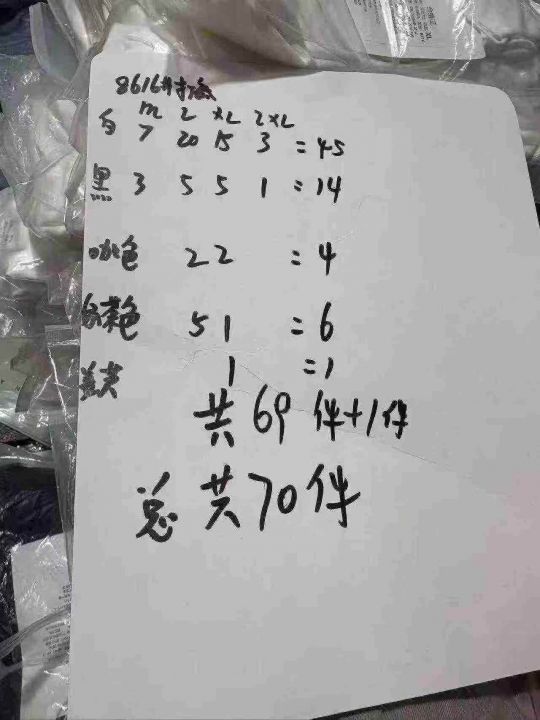 8616打底
M L XL 2XL
白 7 20 15 3 =45
黑 3 5 5 1 =14
咖色 2 2 =4
茶色 5 1 =6
1 =1
共69件+1件
总共70件